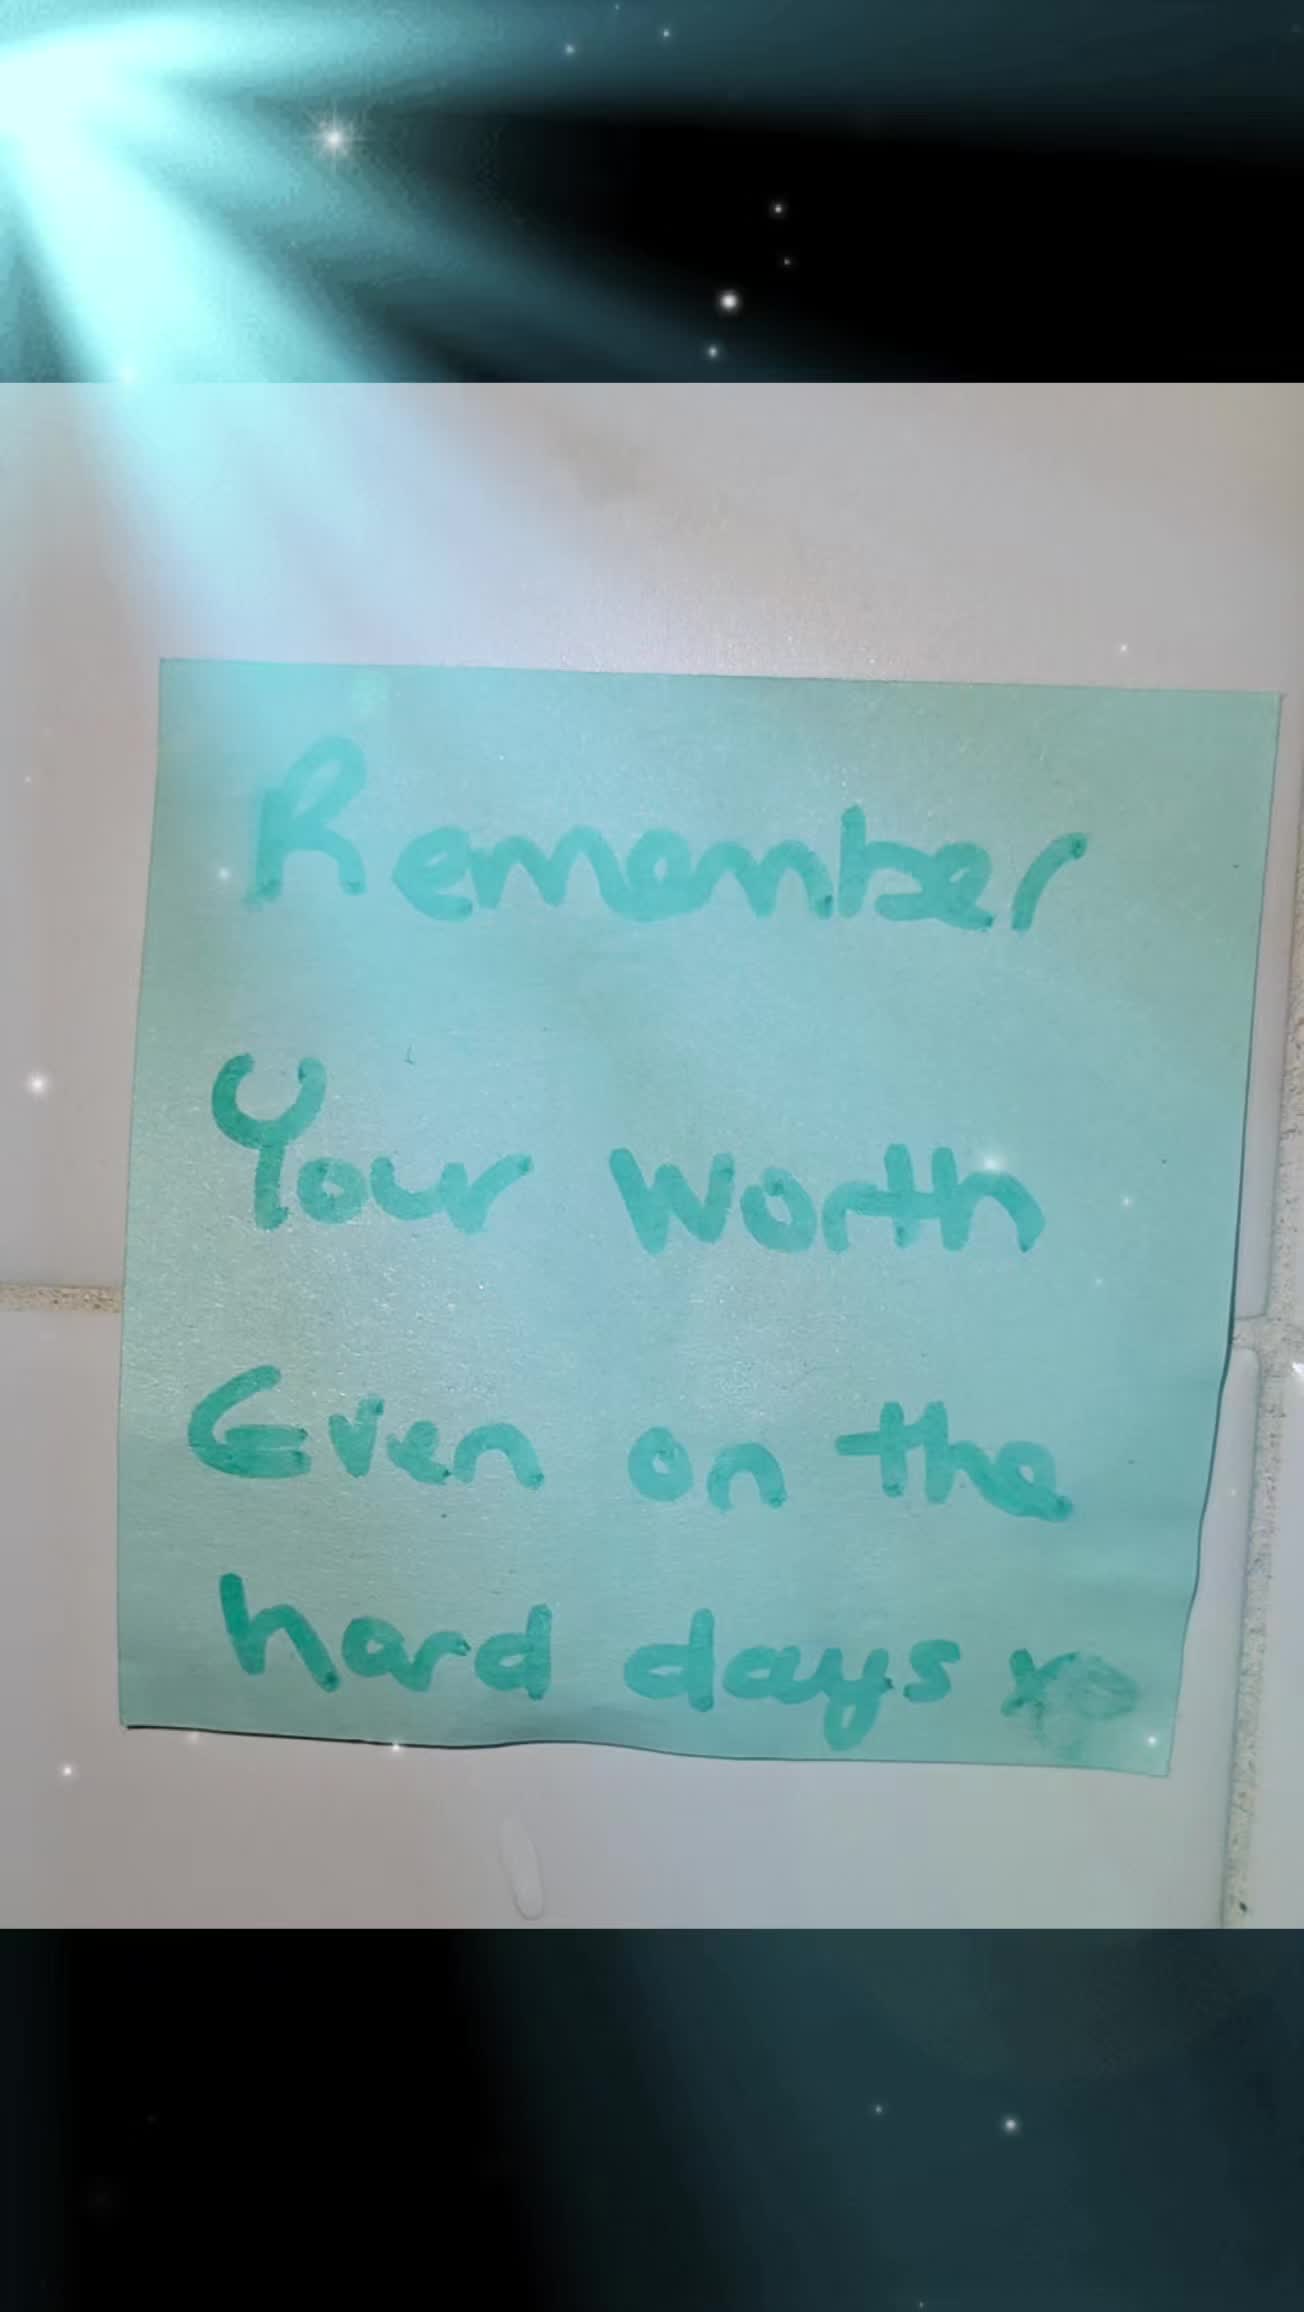 Remember
Your worth
Even on the
hard days x